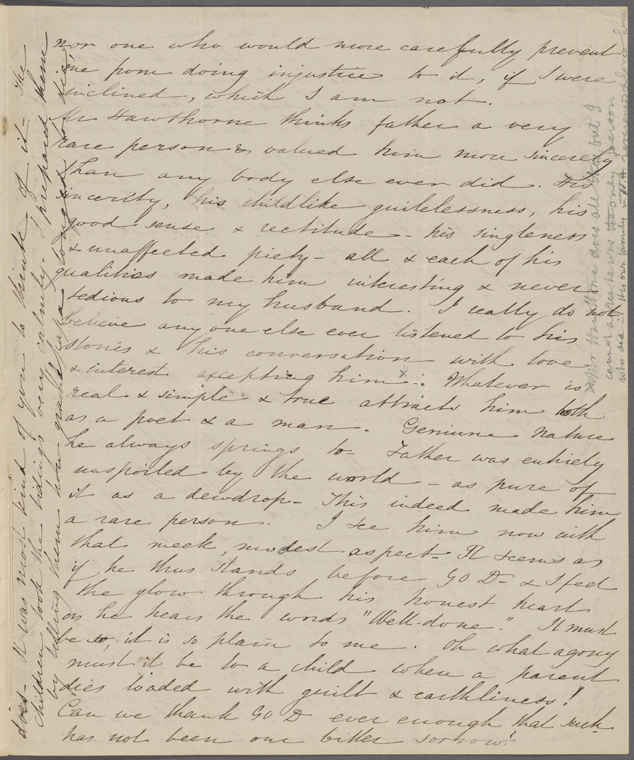 nor one who would more carefully prevent
me from doing injustice to it, if I were
inclined, which I am not.
Mr Hawthorne thinks father a very
rare person & valued him more sincerely
than any body else ever did. His
sincerity, his childlike guilelessness, his
good sense & rectitude - his singleness
& unaffected piety - all & each of his
qualities made him interesting & never
tedious to my husband. I really do not
believe any one else ever listened to his
stories & his conversation with love
& interest excepting him x. Whatever is
real & simple & true attracts him both
as a poet & a man. Genuine nature
he always springs to - Father was entirely
unspoiled by the world - as pure of
it as a dewdrop - This indeed made him
a rare person. I see him now with
that meek, modest aspect - It seems as
if he thus stands before GOD - & I feel
the glow through his honest heart
as he hears the words "Well-done." It must
be so, it is so plain to me. Oh what agony
must it be to a child when a parent
dies loaded with guilt & earthliness!
Can we thank GOD ever enough that such
has not been our bitter sorrow!
does - It was most kind of you to think of it - The
children took the tidings very calmly. I prepared them
by telling them how
x Mr Hawthorne does all but I
cannot was the only person
who died His own family